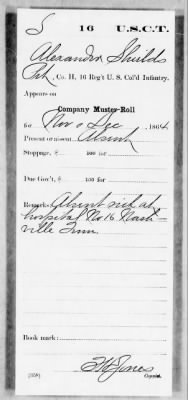 S 16 U.S.C.T.
Alexander Shields
Pvt, Co. H, 16 Reg't U. S. Col'd Infantry.
Appears on
Company Muster-Roll
for Nov & Dec, 1864
Present or absent Absent
Stoppage, $ 100 for
Due Gov't, $ 100 for
Remarks: Absent sick at
hospital No 16 Nash-
ville Tenn.
Book mark:
(358)
Jones
Copyist.